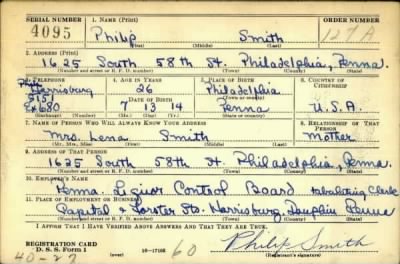 SERIAL NUMBER 1. NAME (Print) ORDER NUMBER
4095 Philip Smith 127A
(First) (Middle) (Last)
2. ADDRESS (Print)
1625 South 58th St. Philadelphia, Penna.
(Number and street or R. F. D. number) (Town) (County) (State)
3. TELEPHONE 4. AGE IN YEARS 5. PLACE OF BIRTH 6. COUNTRY OF CITIZENSHIP
Harrisburg 26 Philadelphia
515 DATE OF BIRTH (Town or county)
7 13 14 Penna U.S.A.
(Mo.) (Day) (Yr.) (State or country)
7. NAME OF PERSON WHO WILL ALWAYS KNOW YOUR ADDRESS 8. RELATIONSHIP OF THAT PERSON
Mrs. Lena Smith Mother
(Mr., Mrs., Miss) (First) (Middle) (Last)
9. ADDRESS OF THAT PERSON
1625 South 58th St. Philadelphia, Penna.
(Number and street or R. F. D. number) (Town) (County) (State)
10. EMPLOYER'S NAME
Penna. Liquor Control Board Clerk
11. PLACE OF EMPLOYMENT OR BUSINESS
Capital & Forster Sts. Harrisburg, Dauphin Penna
(Number and street or R. F. D. number) (Town) (County) (State)
I AFFIRM THAT I HAVE VERIFIED ABOVE ANSWERS AND THAT THEY ARE TRUE.
REGISTRATION CARD
D. S. S. Form 1 16—17105 60 Philip Smith
40-27 (Registrant's signature)